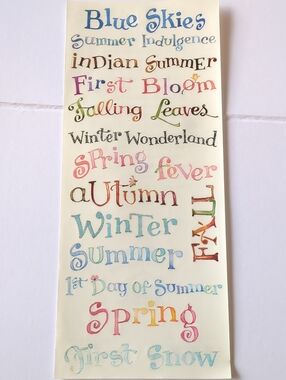 Blue Skies
Summer Indulgence
inDian SummEr
First Bloom
Falling Leaves
Winter Wonderland
SPring fever
aUtumn
FALL
WinTer
Summer
1st Day of Summer
Spring
First Snow